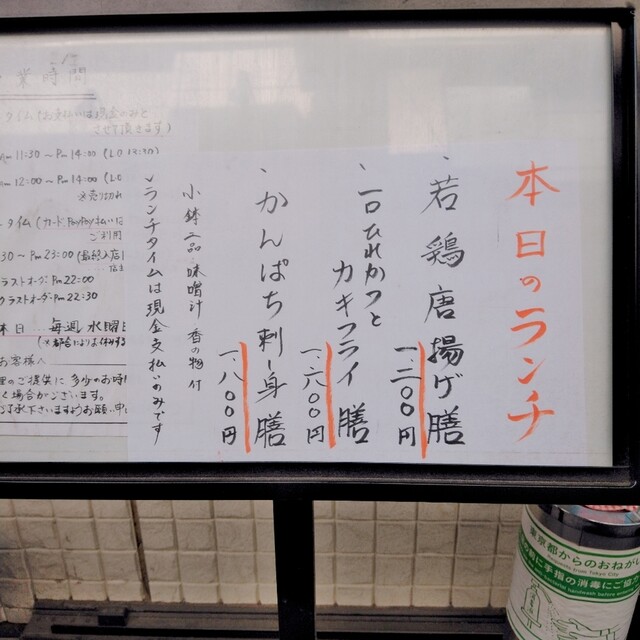 本日のランチ
、若鶏唐揚げ膳
一、二〇〇円
、一口ひれかつと
カキフライ膳
一、六〇〇円
、かんぱち刺し身膳
一、八〇〇円
小鉢二品・味噌汁 香の物付
ランチタイムは現金支払いのみです
業時間
タイム(お支払いは現金のみと
させて頂きます)
Am11:30～Pm14:00(LO 13:30)
Am12:00～Pm14:00(LO
※売切れ
タイム(カード PayPay払いは
ご利用
30～Pm23:00(最終入店
ラストオーダーPm22:00
クラストオーダーPm22:30
休日…毎週水曜日
お客様へ
のご提供に多少のお時
く場合がございます。
ご了承下さいますようお願い申
東京都からのおねがい
手指の消毒にご